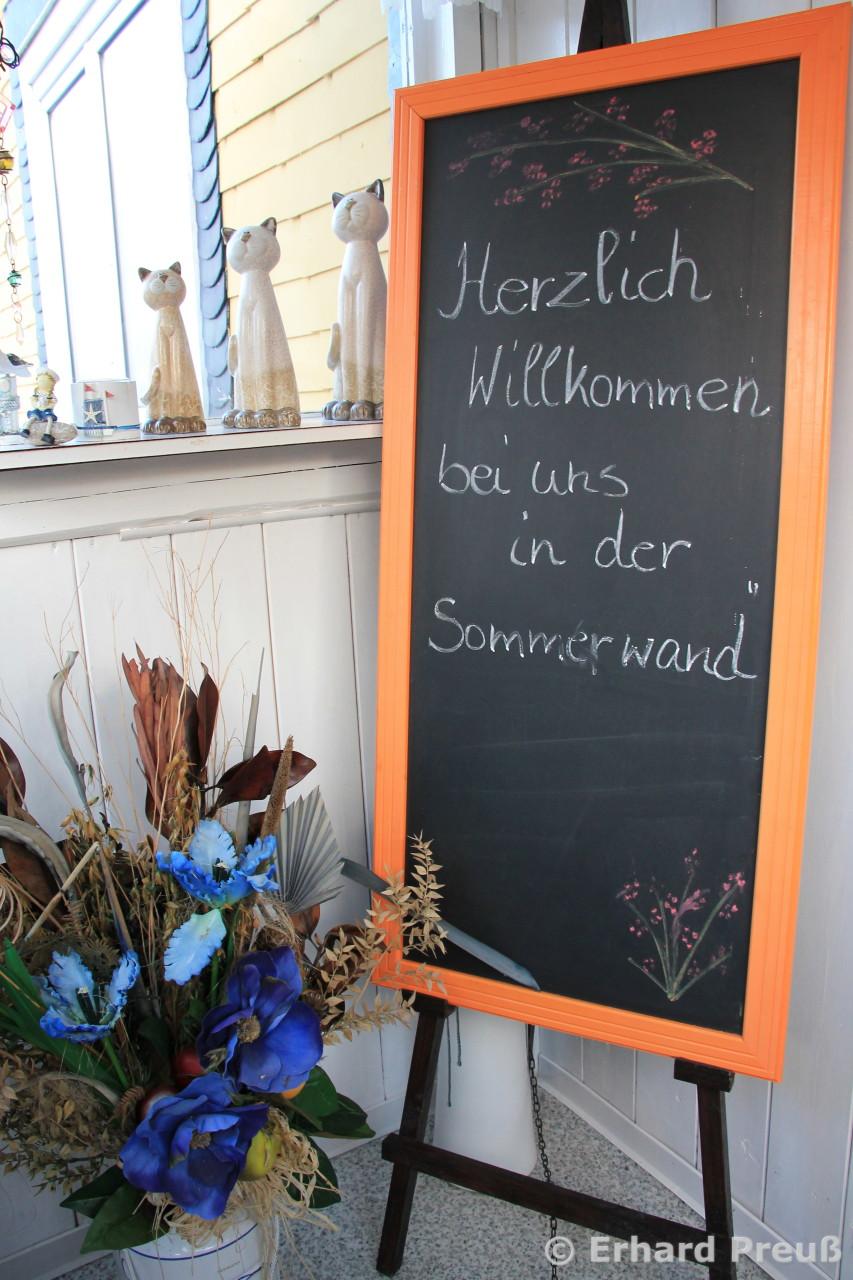 Herzlich
Willkommen
bei uns
in der
Sommerwand"
© Erhard Preuß